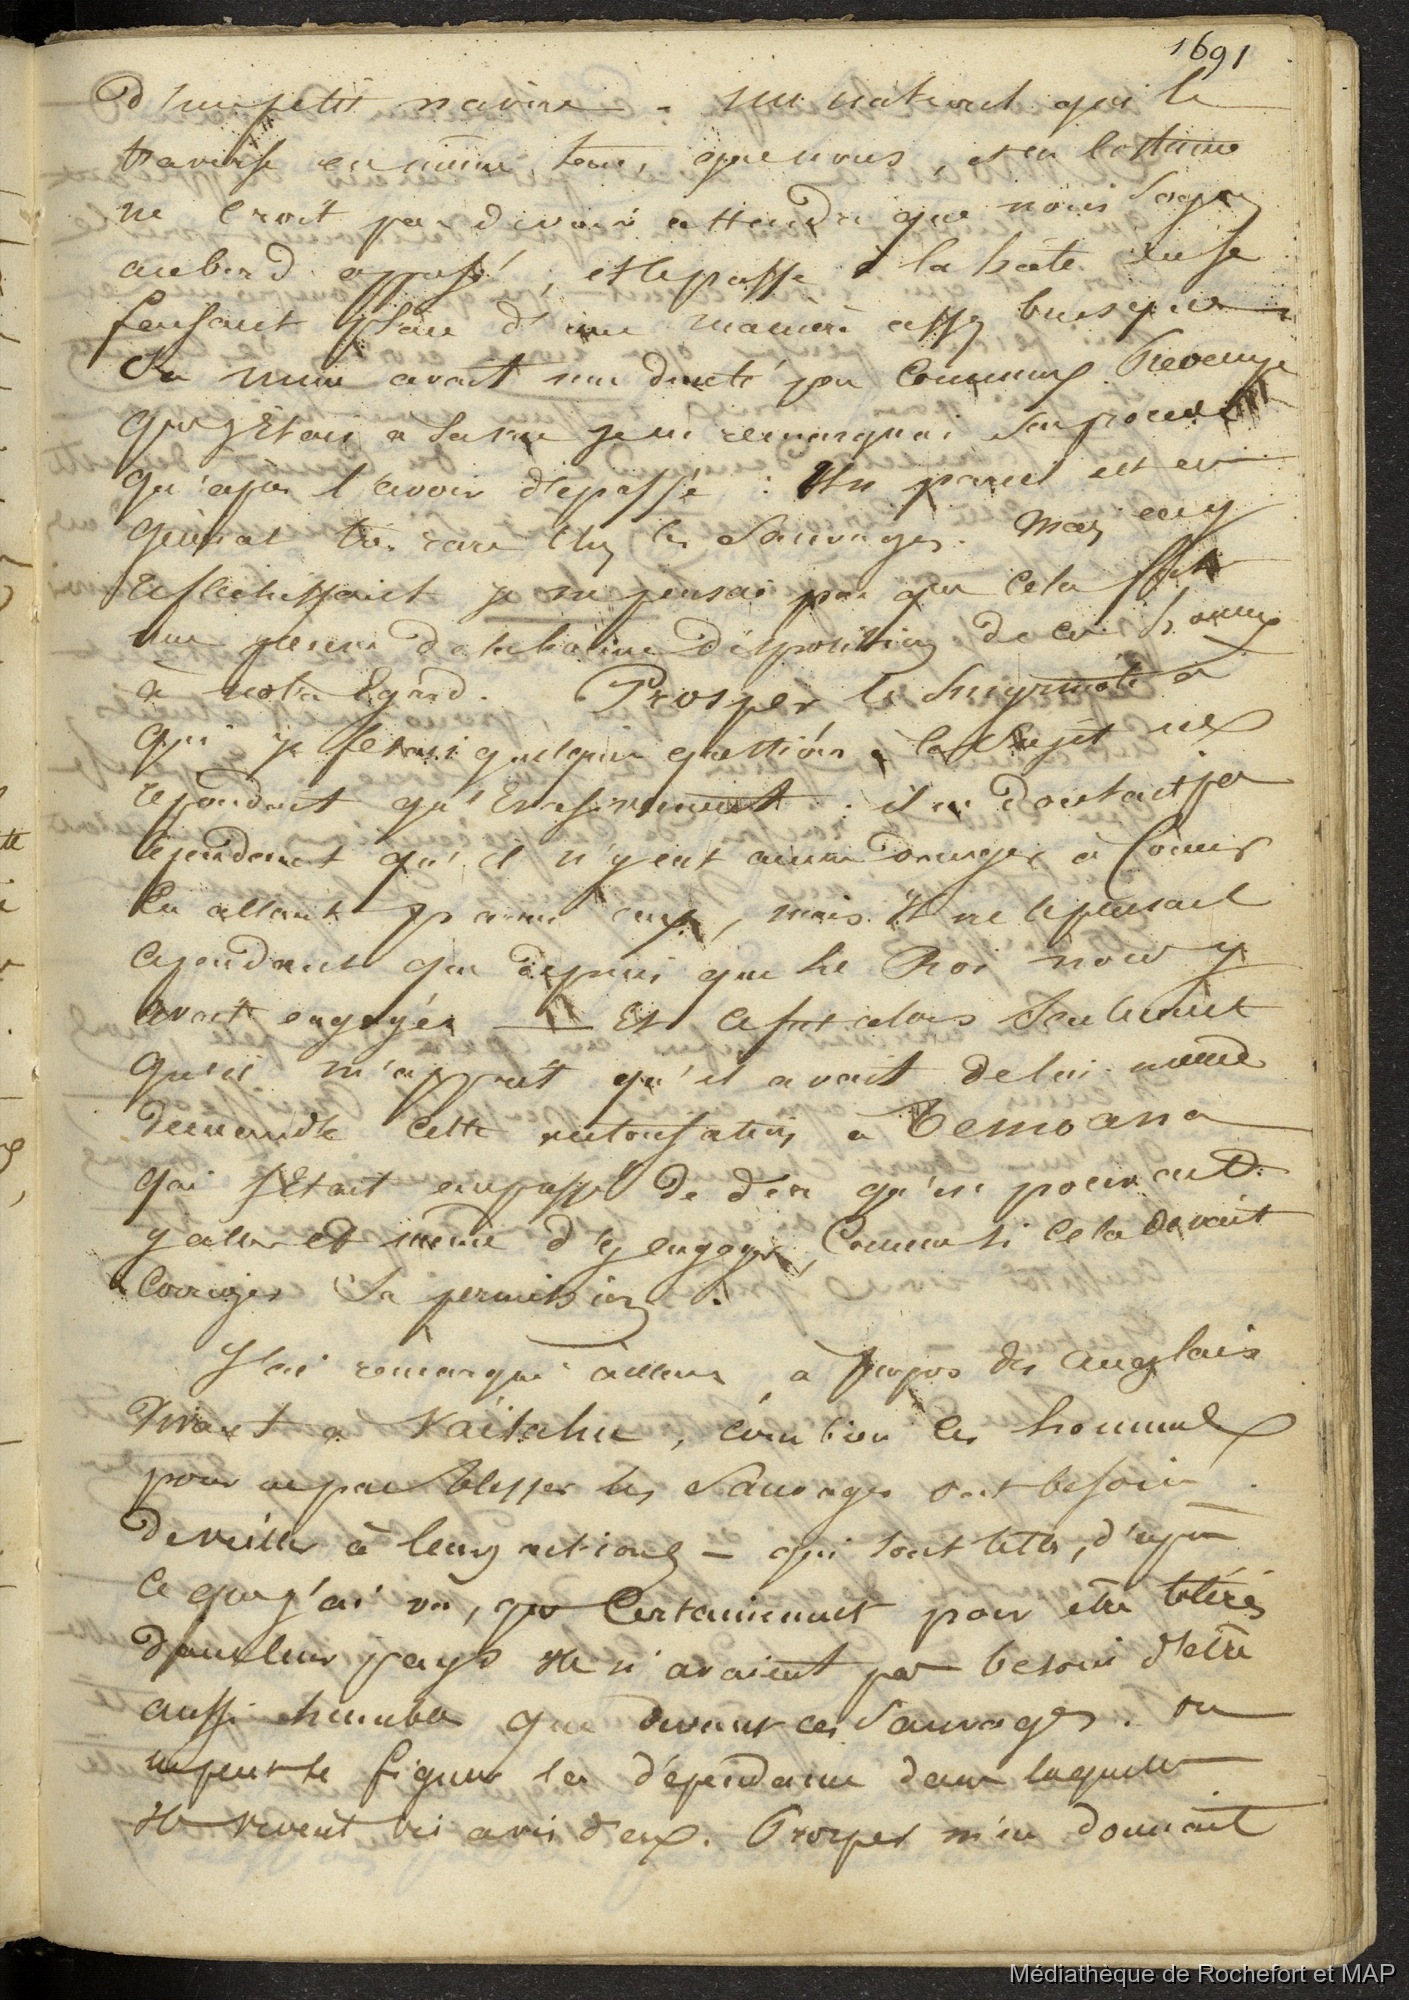 1691
D'un petit navire - un naturel qui le
traverse en même tems, que nous, et en costume
ne croit pas devoir attendre que nous soyons
au bord opposé, et le passe à la hâte en se
faisant place d'une manière assez brusque
Sa mine avait une dureté peu commune
que j'étais à sa vue je ne remarquai
qu'après l'avoir dépassé : Un pareil est en
général très rare chez les Sauvages. Mais en y
réfléchissant je ne pensai pas que cela fut
une preuve de la bonne disposition de ces hommes
à notre égard. Prosper le
qui je faisais quelques questions à ce sujet ne
répondait qu' : il ne doutait pas
cependant qu'il n'y eut aucun danger à courir
en allant parmi eux, mais il ne le pensait
cependant que depuis que le Roi nous y
avait engagés — Et ce fut alors seulement
qu'il m'apprit qu'il avait de lui même
demandé cette autorisation à Temoana
qui s'était empressé de dire qu'on pouvait
y aller et même d'y engager, comme si cela devait
corriger sa permission.
J'ai remarqué ailleurs à propos des Anglais
vivant à Vaïtahu, combien les hommes
pour ne pas blesser les Sauvages ont besoin
de veiller à leurs actions - qui sont telles, d'après
ce que j'ai vu, que certainement pour être tolérés
dans leur pays ils n'avaient pas besoin d'être
aussi humbles que devant ces Sauvages. on
ne peut se figurer la dépendance dans laquelle
ils vivent vis à vis d'eux. Prosper m'en donnait
Médiathèque de Rochefort et MAP